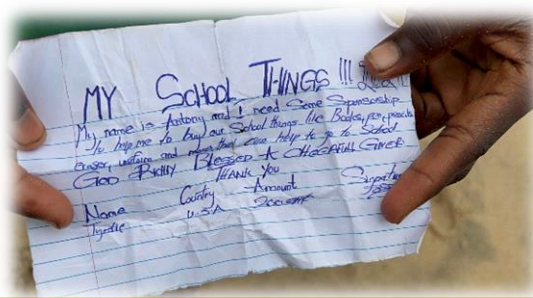 MY SCHOOL THINGS !!!
My name is Antony and I need Some Sponsorship
To help me to buy our School things like Books, pen, pencil
eraser, uniform and many that can help to go to School
GOD RICHLY BLESSED A CHEGARFUL GIVER
THANK YOU
Name Country Amount
U.S.A